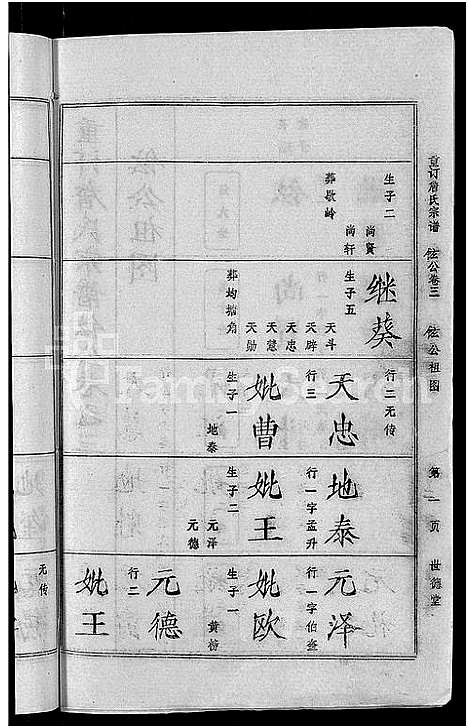 重订詹氏宗谱 纮公卷三 纮公祖图 第一页 世德堂
生子二
尚贤
尚轩
葬歇岭
继葵
生子五
天斗
天辟
天忠
天慧
天勋
葬均墩角
行二无传
天忠
行三
妣曹
生子一
地泰
地泰
行一字孟升
妣王
生子二
元泽
元德
元泽
行一字伯
妣欧
生子一
黄榜
元德
行二
妣王
无传